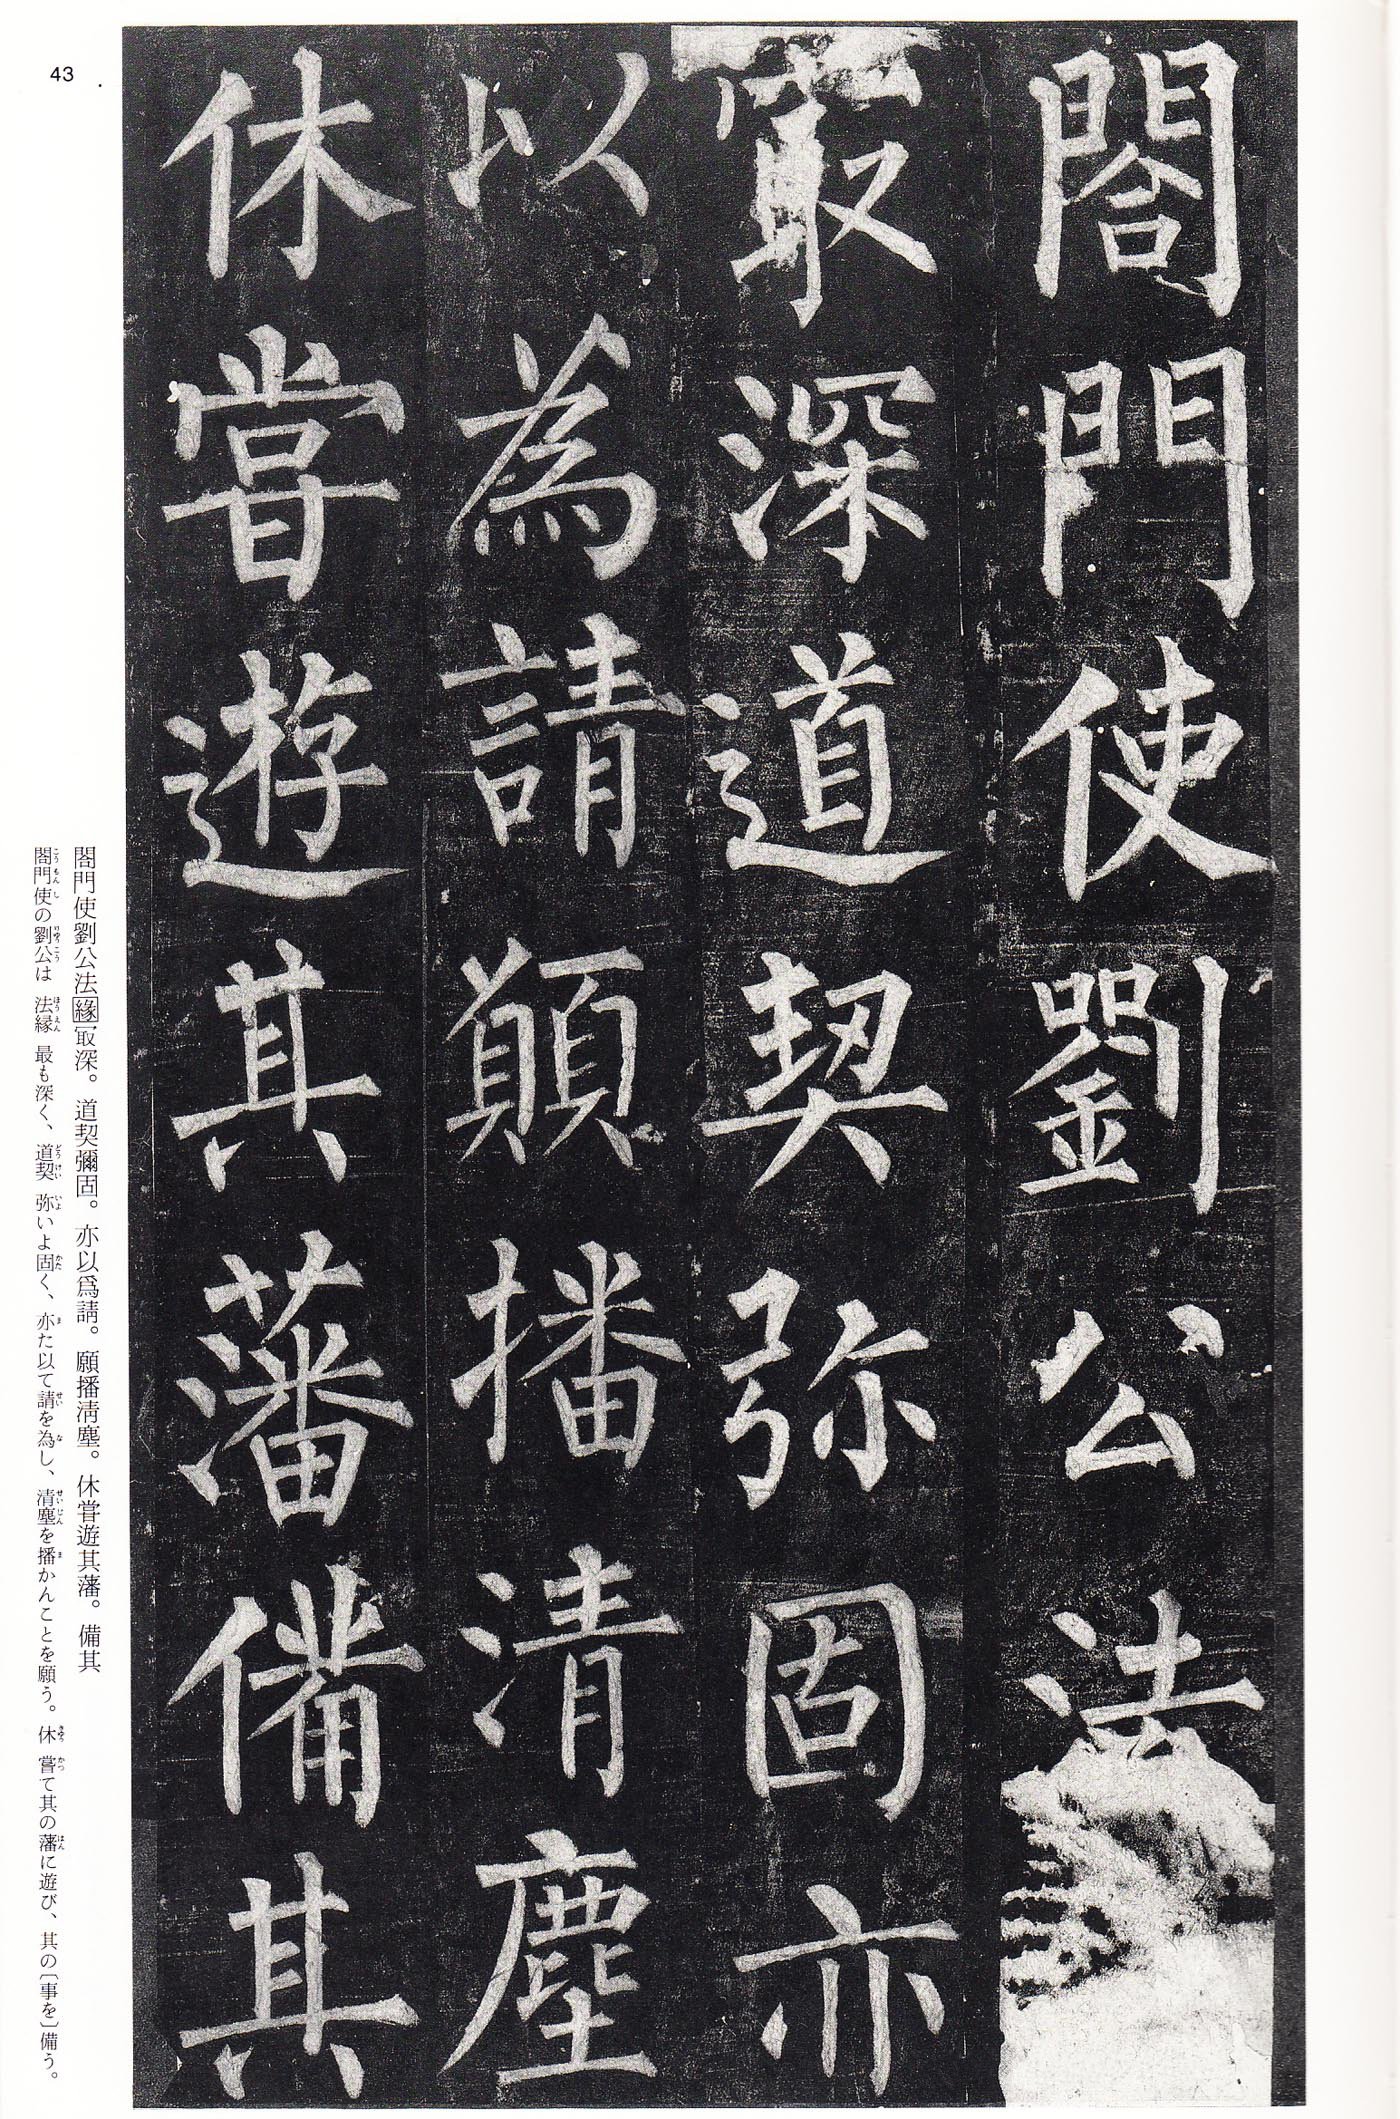 閤門使劉公法
冣深道契弥固亦
以為請願播清塵
休甞遊其藩備其
閤門使劉公法緣冣深。道契彌固。亦以爲請。願播淸塵。休甞遊其藩。備其
閤門使の劉公は 法縁 最も深く、道契 弥いよ固く、亦た以て請を為し、清塵を播かんことを願う。休 嘗て其の藩に遊び、其の〔事を〕備う。
43